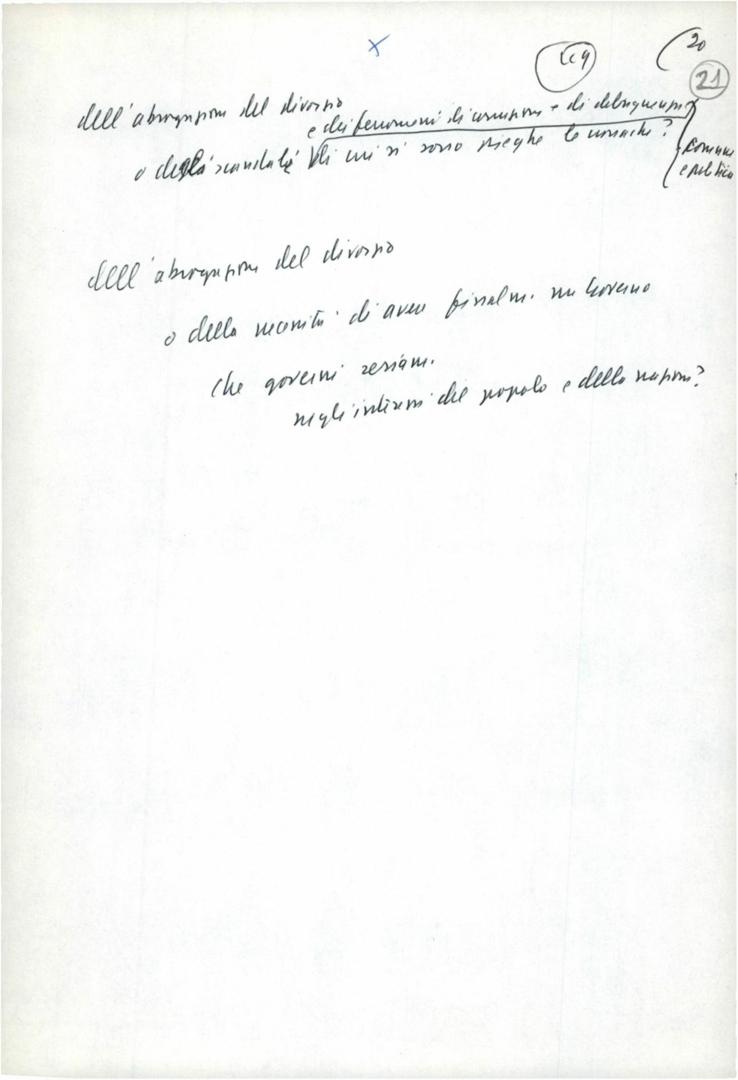 20
21
dell'abrogazione del divorzio
e dei fenomeni di corruzione e di delinquenza
o degli scandali di cui si sono pieghe le cronache?
comune
e politica
dell'abrogazione del divorzio
o della necessità di avere finalm. un Governo
che governi seriam.
negli interessi del popolo e della nazione?